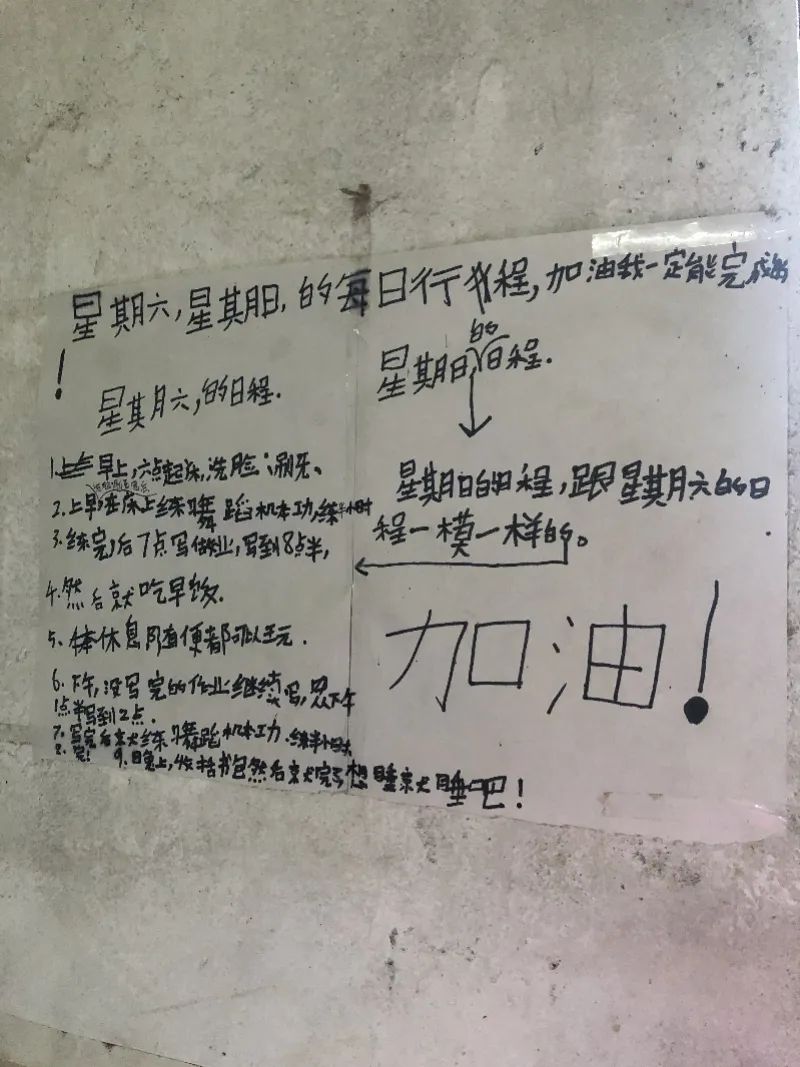 星期六,星期日,的每日行程,加油我一定能完成的
!
星期六,的日程.
1.早上,六点起床,洗脸,刷牙、
2.上早,在床上练舞蹈机本功,练半小时
3.练完,后7点写作业,写到8点半,
4.然后就吃早饭.
5、休息随便都可以玩.
6.下午,没写完的作业继续写,从下午
1点半写到2点.
7.写完后就练舞蹈机本功.练半小时
8.完!
9.晚上,收拾书包然后就完了想睡就睡吧!
星期日的日程.
星期日的日程,跟星期六的日
程一模一样的。
加油!